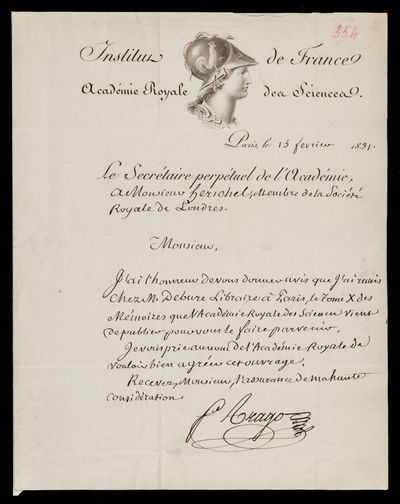 354
Institut de France
Académie Royale des Sciences.
Paris, le 15 février 1831.
Le Secrétaire perpétuel de l'Académie,
A Monsieur herschel, Membre de la Société
Royale de Londres.
Monsieur,
J'ai l'honneur de vous donner avis que j'ai remis
Chez M. Debure Libraire à Paris, le tome X des
Mémoires que l'Académie Royale des Sciences vient
de publier, pour vous le faire parvenir.
Je vous prie au nom de l'Académie Royale de
vouloir bien agréer cet ouvrage.
Recevez, Monsieur, l'assurance de ma haute
Considération
F. Arago